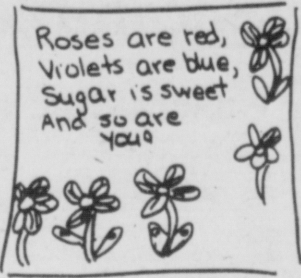 Roses are red,
Violets are blue,
Sugar is sweet
And so are
you.